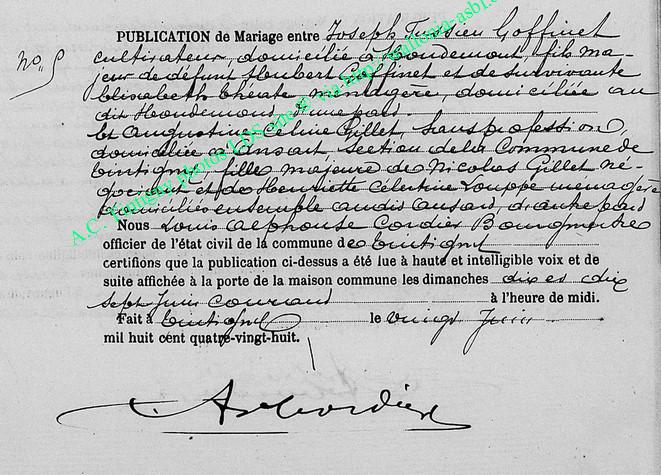 PUBLICATION de Mariage entre Joseph Jussieu Goffinet
no. 5
cultivateur, domiciliée à Houdemont, fils ma-
jeur de défunt Hubert Goffinet et de survivante
Elisabeth Thérate ménagère, domiciliée au
dit Houdemont d'une part.
Et Augustine Céline Gillet, sans profession,
domiciliée à Ansart section de la Commune de
Tintigny, fille majeure de Nicolas Gillet né
gociant et de Henriette Célestine Louppe ménagère
domiciliés ensemble audit Ansart, d'autre part
Nous Louis Alphonse Cordier Bourgmestre
officier de l'état civil de la commune de Tintigny
certifions que la publication ci-dessus a été lue à haute et intelligible voix et de
suite affichée à la porte de la maison commune les dimanches dix et dix
sept Juin courant à l'heure de midi.
Fait à Tintigny le vingt Juin
mil huit cent quatre-vingt-huit.
A.C. Tintigny photos LDS site © via http://luxroots-asbl